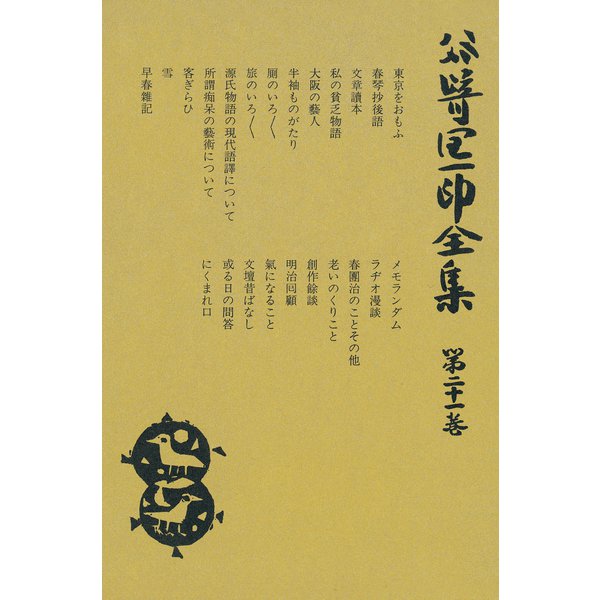 谷崎潤一郎全集 第二十一巻
東京をおもふ
春琴抄後語
文章讀本
私の貧乏物語
大阪の藝人
半袖ものがたり
厠のいろ〱
旅のいろ〱
源氏物語の現代語譯について
所謂痴呆の藝術について
客ぎらひ
雪
早春雜記
メモランダム
ラヂオ漫談
春團治のことその他
老いのくりこと
創作餘談
明治回顧
氣になること
文壇昔ばなし
或る日の問答
にくまれ口